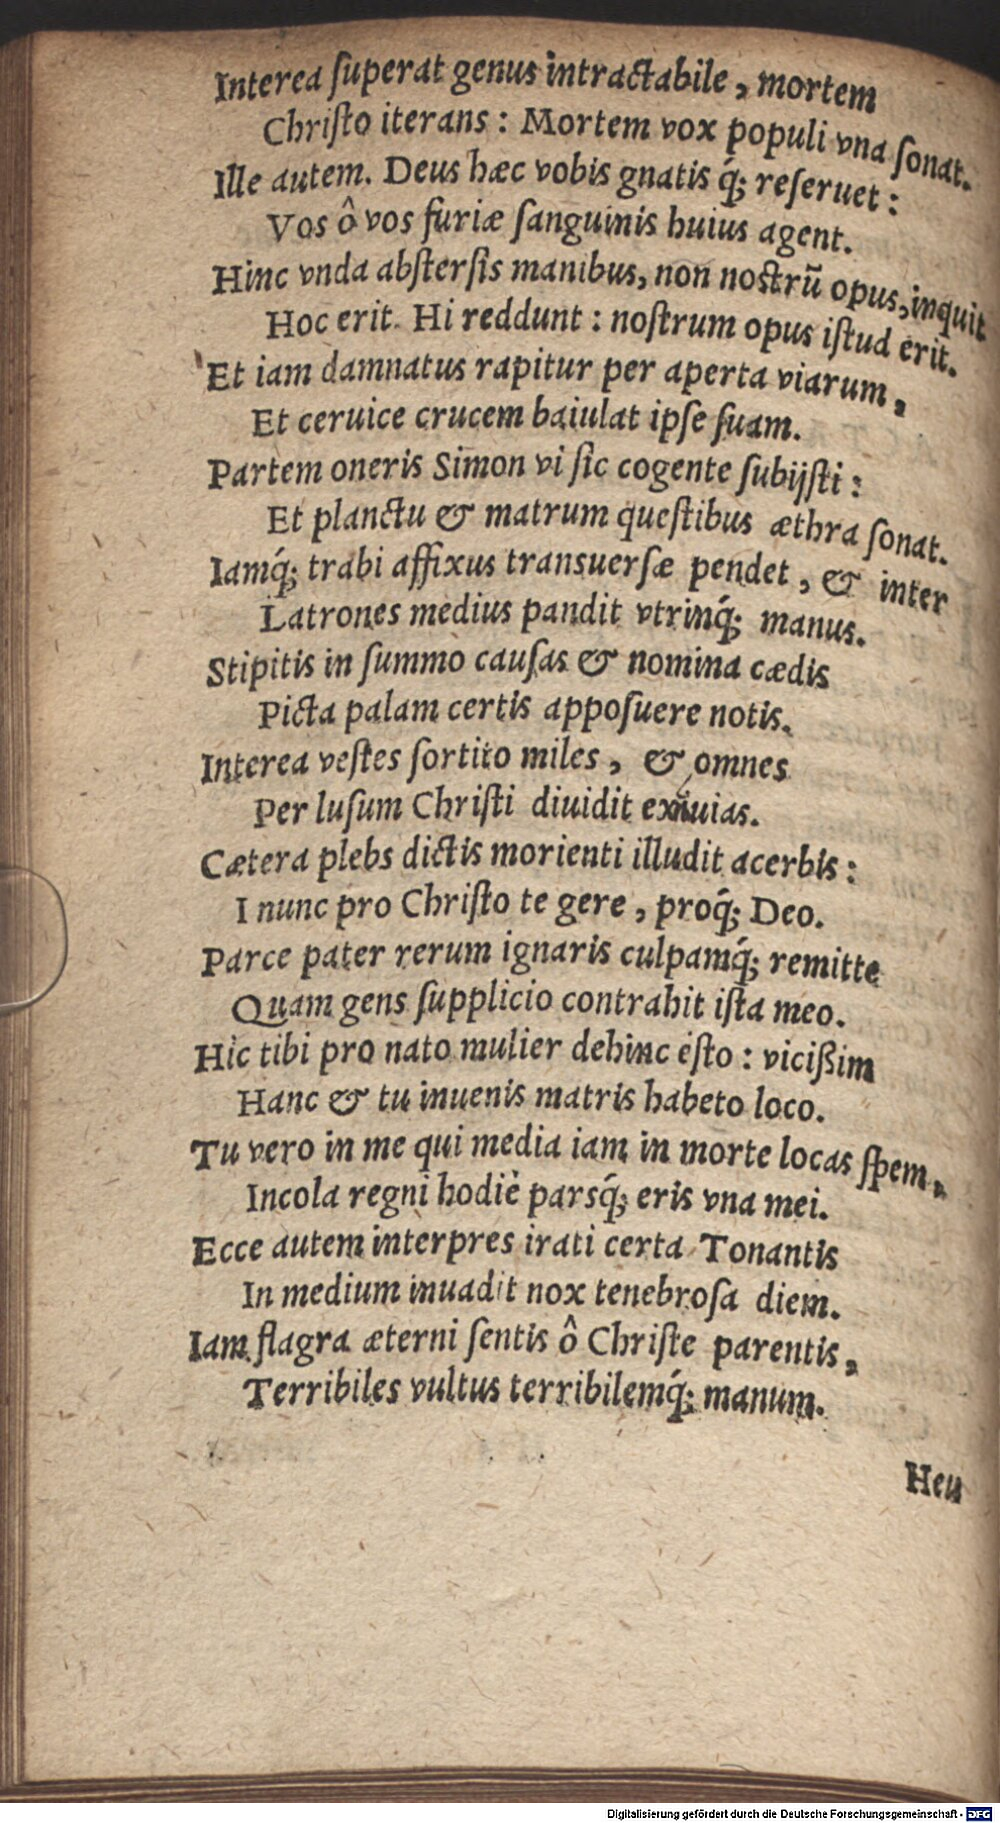 Interea ſuperat genus intractabile, mortem
Chriſto iterans: Mortem vox populi vna ſonat.
Ille autem. Deus hæc vobis gnatis q́; reſeruet:
Vos ô vos furiæ ſanguinis huius agent.
Hinc vnda abſterſis manibus, non noſtrũ opus, inquit
Hoc erit. Hi reddunt: noſtrum opus iſtud erit.
Et iam damnatus rapitur per aperta viarum,
Et ceruice crucem baiulat ipſe ſuam.
Partem oneris Simon vi ſic cogente ſubijſti:
Et planctu & matrum queſtibus æthra ſonat.
Iamq́; trabi affixus transuerſæ pendet, & inter
Latrones medius pandit vtrinq́; manus.
Stipitis in ſummo cauſas & nomina cædis
Picta palam certis appoſuere notis.
Interea veſtes ſortito miles, & omnes
Per luſum Chriſti diuidit exuuias.
Cætera plebs dictis morienti illudit acerbis:
I nunc pro Chriſto te gere, proq́; Deo.
Parce pater rerum ignaris culpamq́; remitte
Quam gens ſupplicio contrahit iſta meo.
Hic tibi pro nato mulier dehinc eſto: vicißim
Hanc & tu iuuenis matris habeto loco.
Tu vero in me qui media iam in morte locas ſpem,
Incola regni hodiè parsq́; eris vna mei.
Ecce autem interpres irati certa Tonantis
In medium inuadit nox tenebroſa diem.
Iam flagra æterni ſentis ô Chriſte parentis,
Terribiles vultus terribilemq́; manum.
Heu
Digitalisierung gefördert durch die Deutsche Forschungsgemeinschaft - DFG